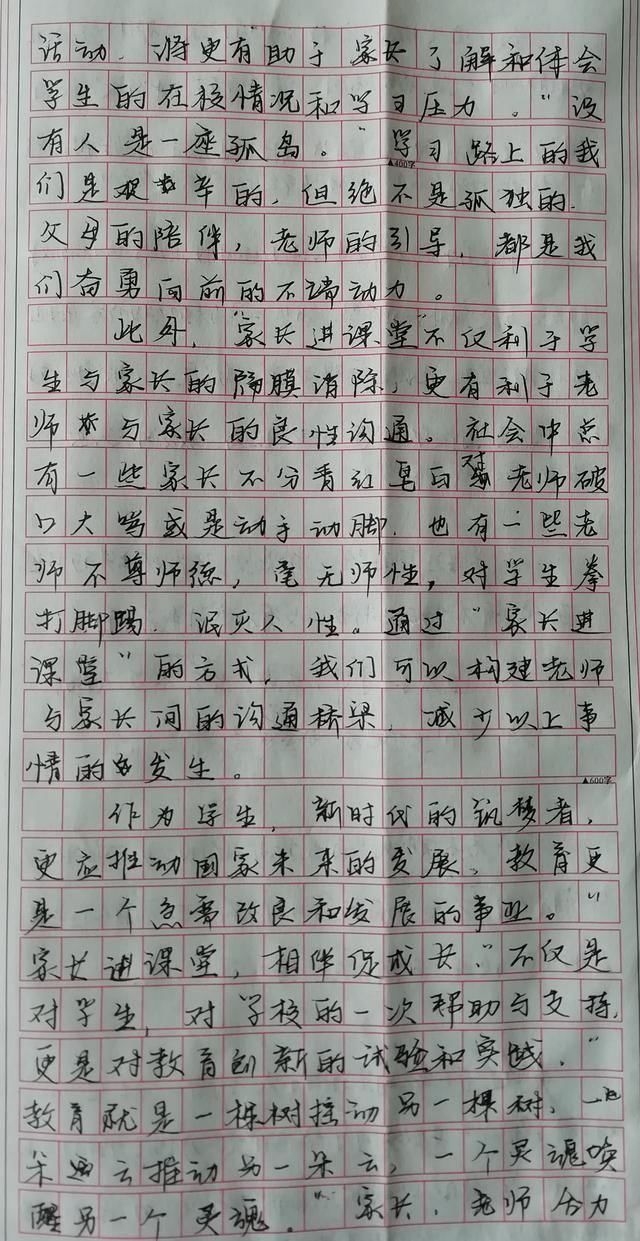 活动，将更有助于家长了解和体会
学生的在校情况和学习压力。“没
有人是一座孤岛。”学习路上的我
▲400字
们是艰辛的，但绝不是孤独的.
父母的陪伴，老师的引导，都是我
们奋勇向前的不竭动力。
此外，“家长进课堂”不仅利于学
生与家长的隔膜消除，更有利于老
师与家长的良性沟通。社会中总
有一些家长不分青红皂白对老师破
口大骂或是动手动脚，也有一些老
师不尊师德，毫无师性，对学生拳
打脚踢，泯灭人性。通过“家长进
课堂”的方式，我们可以构建老师
与家长间的沟通桥梁，减少以上事
情的发生。
▲600字
作为学生，新时代的筑梦者，
更应推动国家未来的发展，教育更
是一个急需改良和发展的事业。“
家长进课堂，相伴促成长”不仅是
对学生，对学校的一次帮助与支持，
更是对教育创新的试验和实践，“
教育就是一棵树摇动另一棵树，一
朵云推动另一朵云，一个灵魂唤
醒另一个灵魂。”家长，老师合力